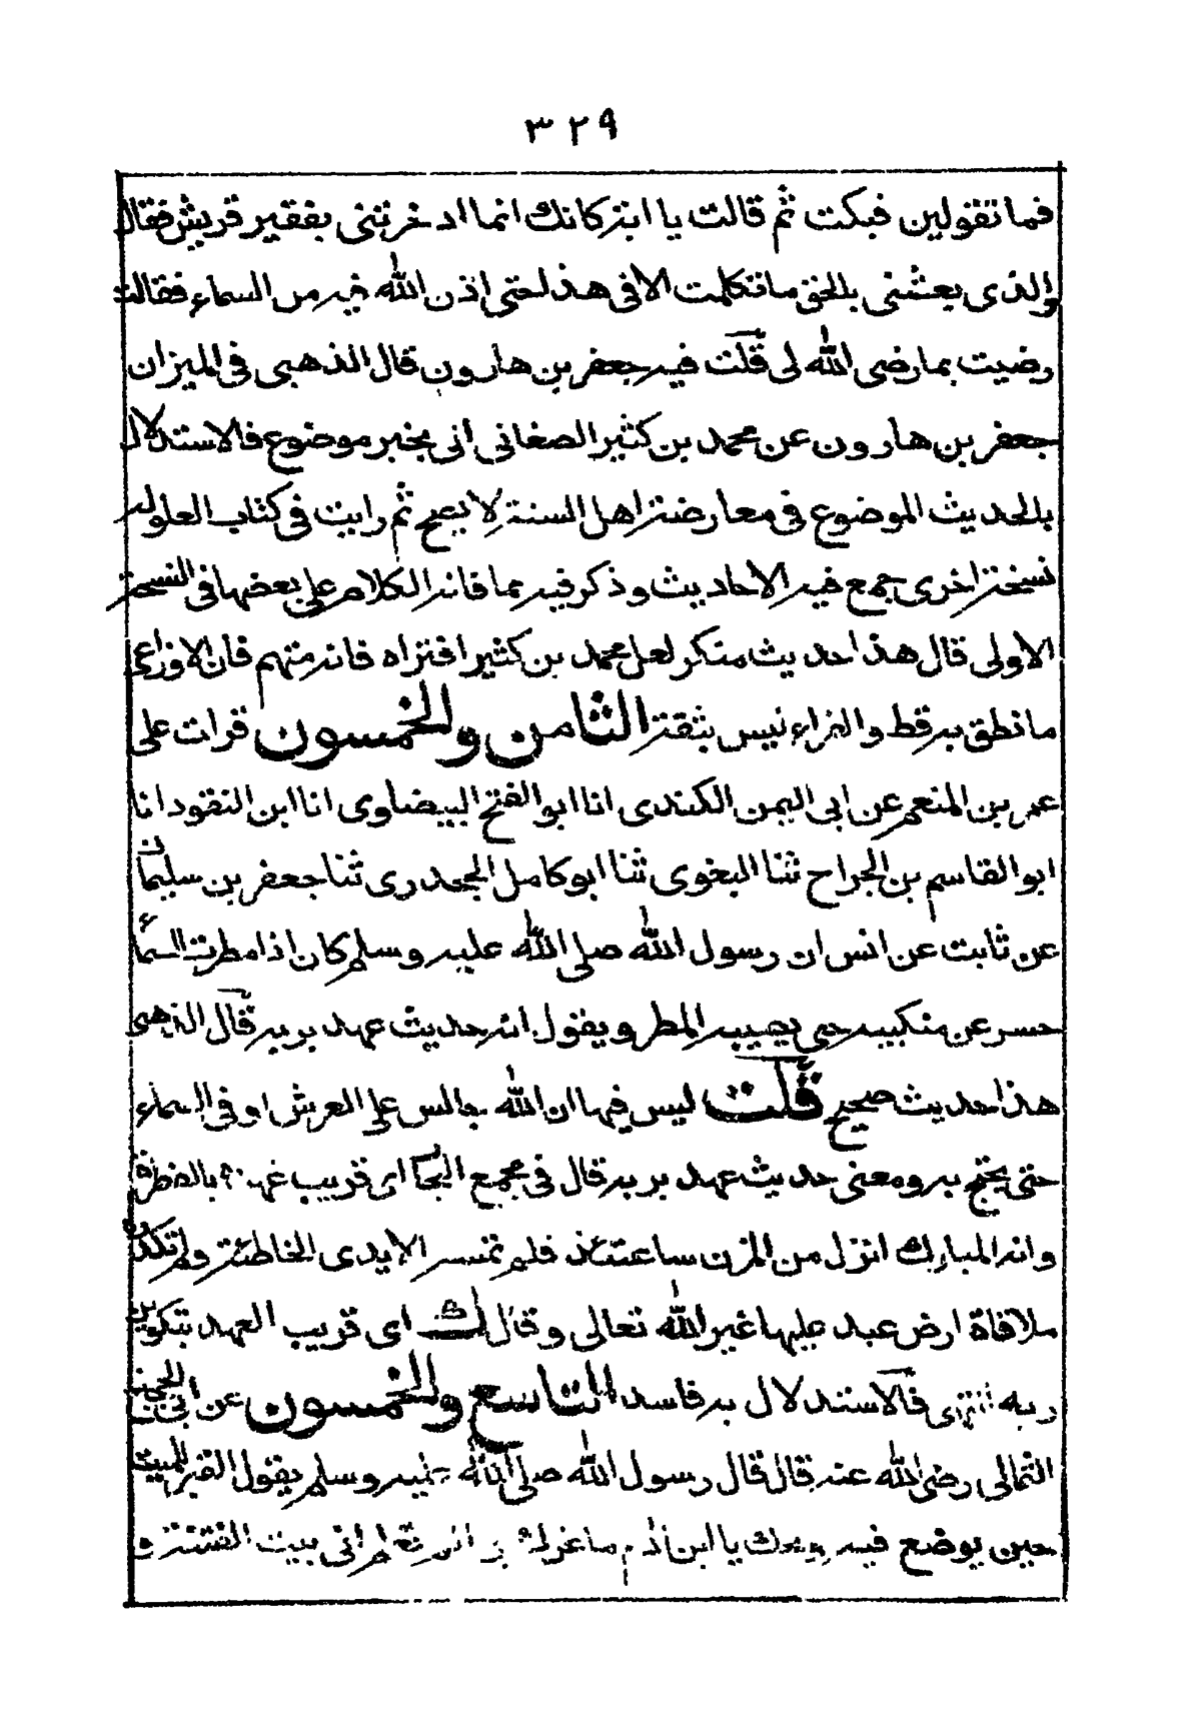 ٣٢٩
فما تقولين فبكت ثم قالت يا ابته كانك انما ادخرتنى بفقير قريش فقال
والذى بعثنى بالحق ما تكلمت الا فى هذا حتى اذن الله فيه من السماء فقالت
رضيت بما رضى الله لى قلت فيه جعفر بن هارون قال الذهبى فى الميزان
جعفر بن هارون عن محمد بن كثير الصغانى اتى بخبر موضوع فالاستدلال
بالحديث الموضوع فى معارضته اهل السنة لا يصح ثم رايت فى كتاب العلو له
نسخة اخرى جمع فيه الاحاديث وذكر فيه مما فاته الكلام على بعضها فى النسخة
الاولى قال هذا حديث منكر لعل محمد بن كثير افتراه فانه متهم فان الاوزاعى
ما نطق به قط والفراء ليس بثقة الثامن والخمسون قرات على
عمر بن المنعم عن ابى اليمن الكندى انا ابو الفتح البيضاوى انا ابن النقود انا
ابو القاسم بن الجراح ثنا البغوى ثنا ابو كامل الجحدرى ثنا جعفر بن سليمان
عن ثابت عن انس ان رسول الله صلى الله عليه وسلم كان اذا مطرت السماء
حسر عن منكبيه حتى يصيبه المطر ويقول انه حديث عهد بربه قال الذهبى
هذا حديث صحيح قلت ليس فيها ان الله جالس على العرش او فى السماء
حتى يحتج به ومعنى حديث عهد بربه قال فى مجمع البحار اى قريب بالفطرة
وانه المبارك انزل من المزن ساعتئذ فلم تمسه الايدى الخاطئة ولم تكدره
ملاقاة ارض عبد عليها غير الله تعالى وقال ك اى قريب العهد بتكوين
ربه انتهى فالاستدلال به فاسد التاسع والخمسون عن ابى الحجاج
الثمالى رضى الله عنه قال قال رسول الله صلى الله عليه وسلم يقول القبر للميت
حين يوضع فيه ويحك يا ابن ادم ما غرك بى الم تعلم انى بيت الفتنة و